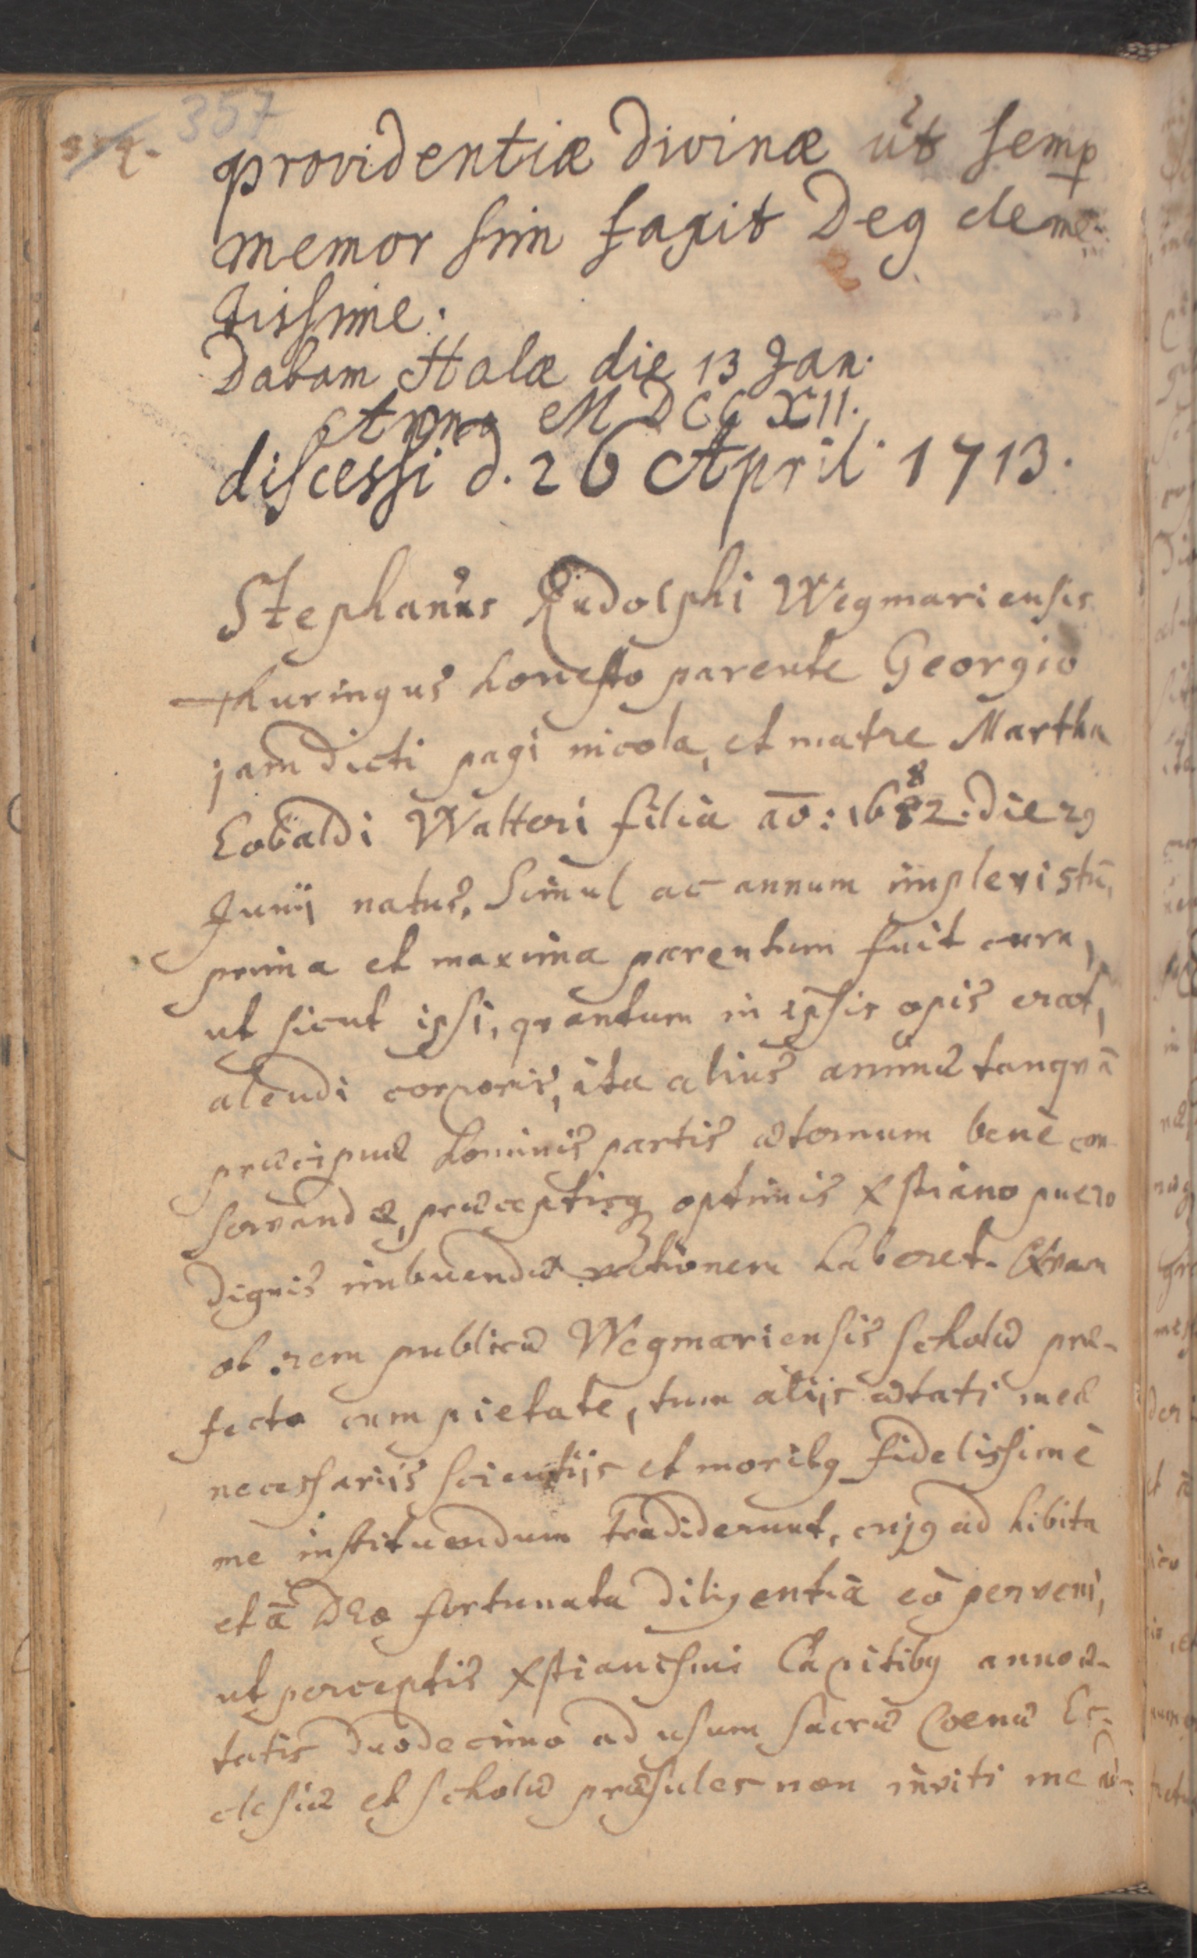 357
providentiæ divinæ ut semp
memor sim faxit Deg cleme-
tissime.
Dabam Halæ die 13 Jan.
Anno MDCCXII.
discessi d. 26 April 1713.
Stephanus Rudolphi Wegmariensis
Thuringus honesto parente Georgio
jam dicti pagi incola, et matre Martha
Cobaldi Walteri filia aō: 1682. die 29
Junij natus. Simul ac annum implevi 5tū,
prima et maxima parentum fuit cura,
ut sicut ipsi, qvantum in ipsis opis erat,
alendi corporis, ita alius animæ tanqvā
præcipuæ hominis partis æternum benè con-
servandæ, præceptisq optimis Xstiano puero
dignis imbuendæ rationem haberet. Qvam
ob rem publicæ Wegmariensis scholæ præ-
fecto cum pietate, tum alijs ætati meæ
necessariis scientijs et moribg fidelissimè
me instituendum tradiderunt, cujg adhibita
et à DEo fortunata diligentia eò perveni,
ut perceptis Xstianismi Capitibg anno æ-
tatis duodecimo ad usum sacræ Coenæ Ec-
clesiæ et scholæ præsules non inviti me ad-